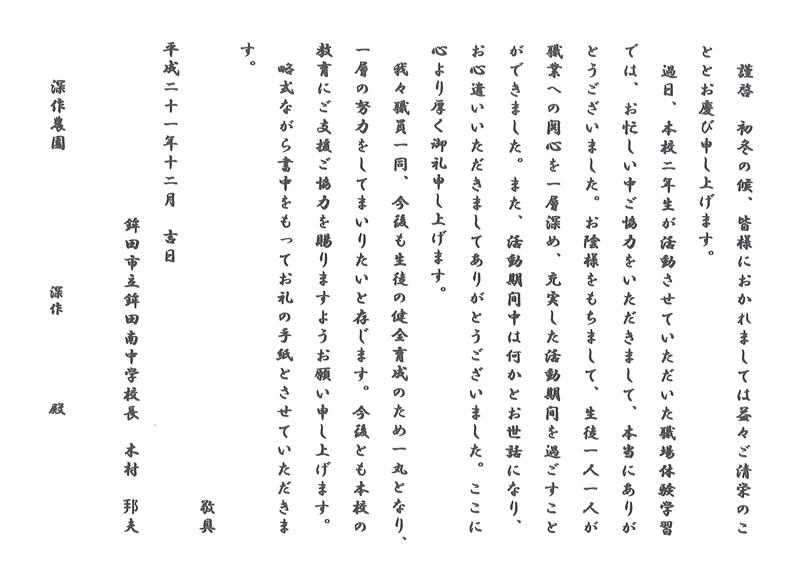 謹啓　初冬の候、皆様におかれましては益々ご清栄のこ
ととお慶び申し上げます。
　過日、本校二年生が活動させていただいた職場体験学習
では、お忙しい中ご協力をいただきまして、本当にありが
とうございました。お陰様をもちまして、生徒一人一人が
職業への関心を一層深め、充実した活動期间を過ごすこと
ができました。また、活動期间中は何かとお世話になり、
お心遣いいただきましてありがとうございました。ここに
心より厚く御礼申し上げます。
　我々職員一同、今後も生徒の健全育成のため一丸となり、
一層の努力をしてまいりたいと存じます。今後とも本校の
教育にご支援ご協力を賜りますようお願い申し上げます。
　略式ながら書中をもってお礼の手紙とさせていただきま
す。
敬具
平成二十一年十二月　吉日
鉾田市立鉾田南中学校長　木村　邦夫
深作農園　深作　殿